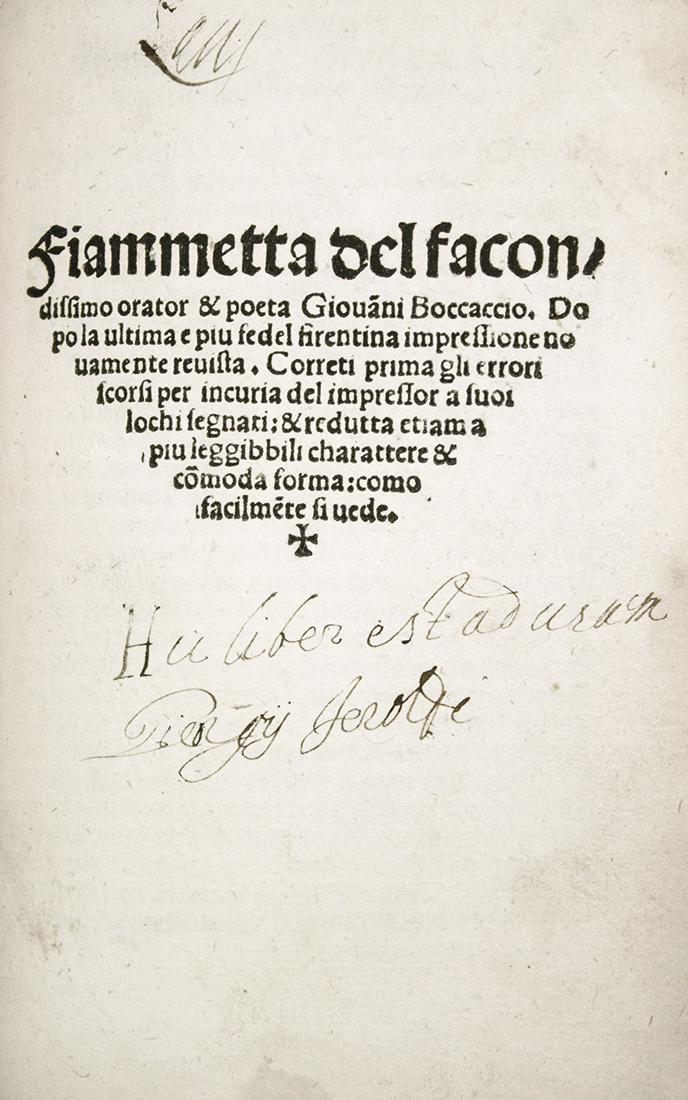 Fiammetta del facon/
dissimo orator & poeta Giouãni Boccaccio. Do
po la ultima e piu fedel firentina impressione no
uamente reuista. Correti prima gli errori
scorsi per incuria del impressor a suoi
lochi segnati: & redutta etiam a
piu leggibbili charattere &
cõmoda forma: como
facilmẽte si uede.
✠
Hic liber est ad usum